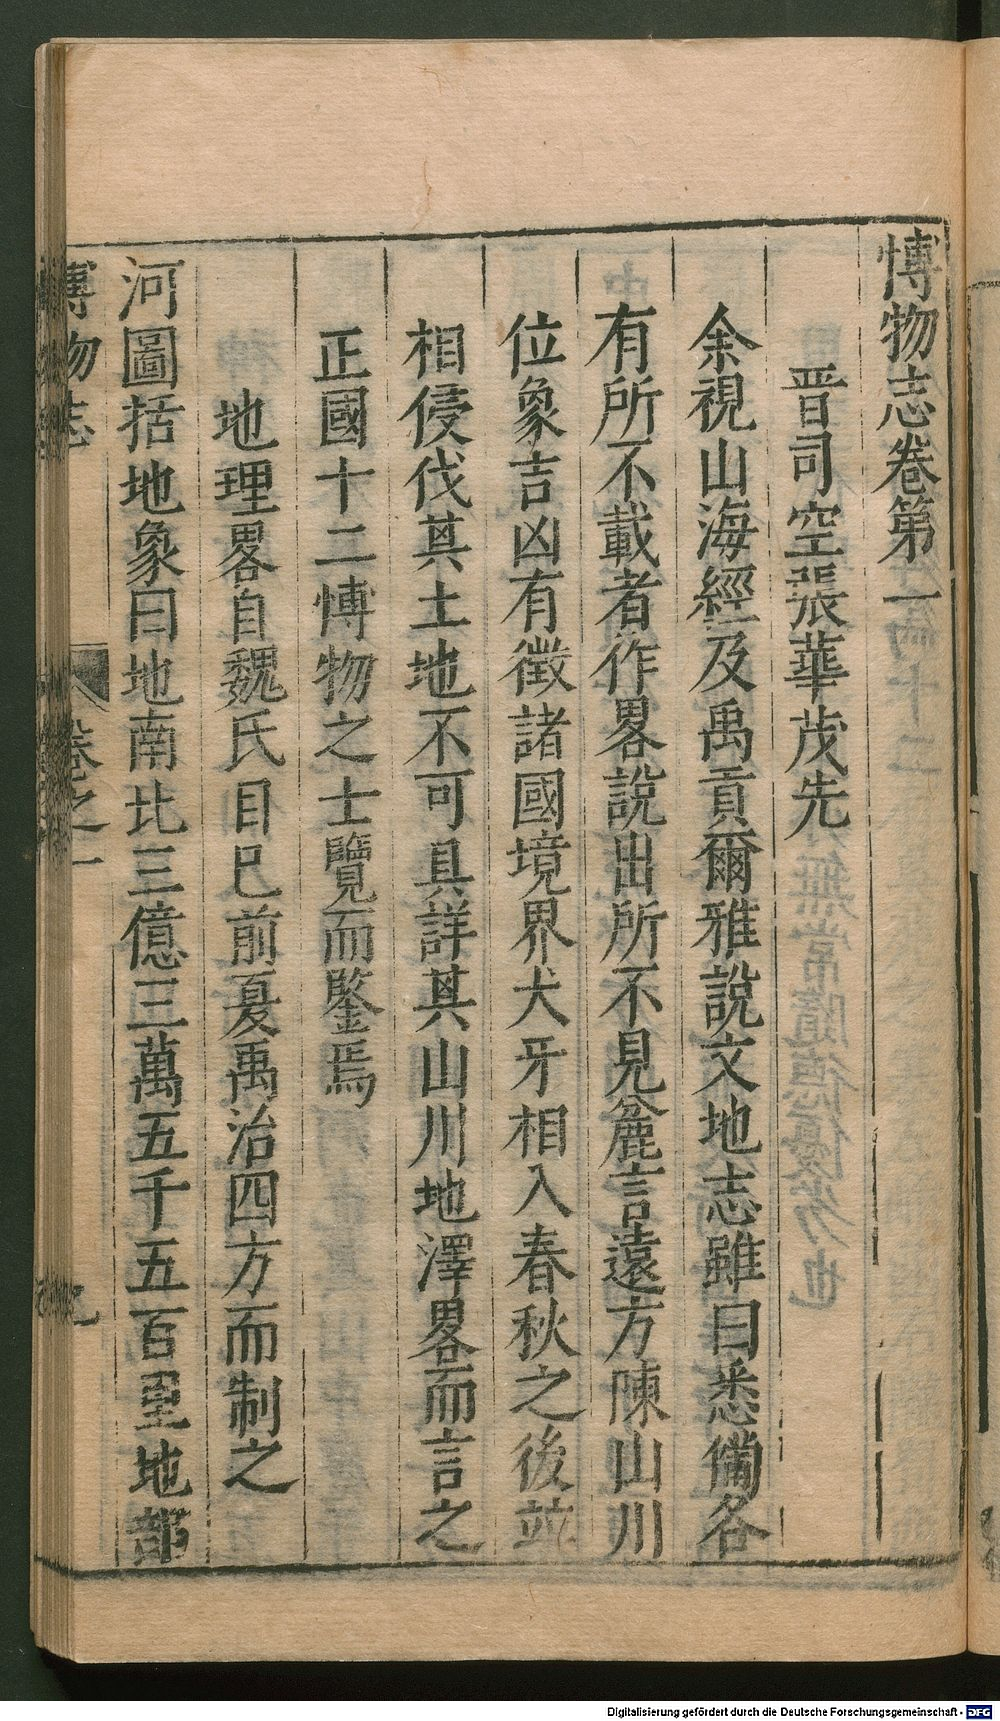 博物志卷第一
晋司空張華茂先
余視山海經及禹貢爾雅說文地志雖曰悉備各
有所不載者作畧說出所不見麄言遠方陳山川
位象吉凶有徵諸國境界犬牙相入春秋之後並
相侵伐其土地不可具詳其山川地澤畧而言之
正國十二博物之士覽而鑒焉
地理畧自魏氏目巳前夏禹治四方而制之
河圖括地象曰地南北三億三萬五千五百里地部
博物志 卷之一
Digitalisierung gefördert durch die Deutsche Forschungsgemeinschaft - DFG